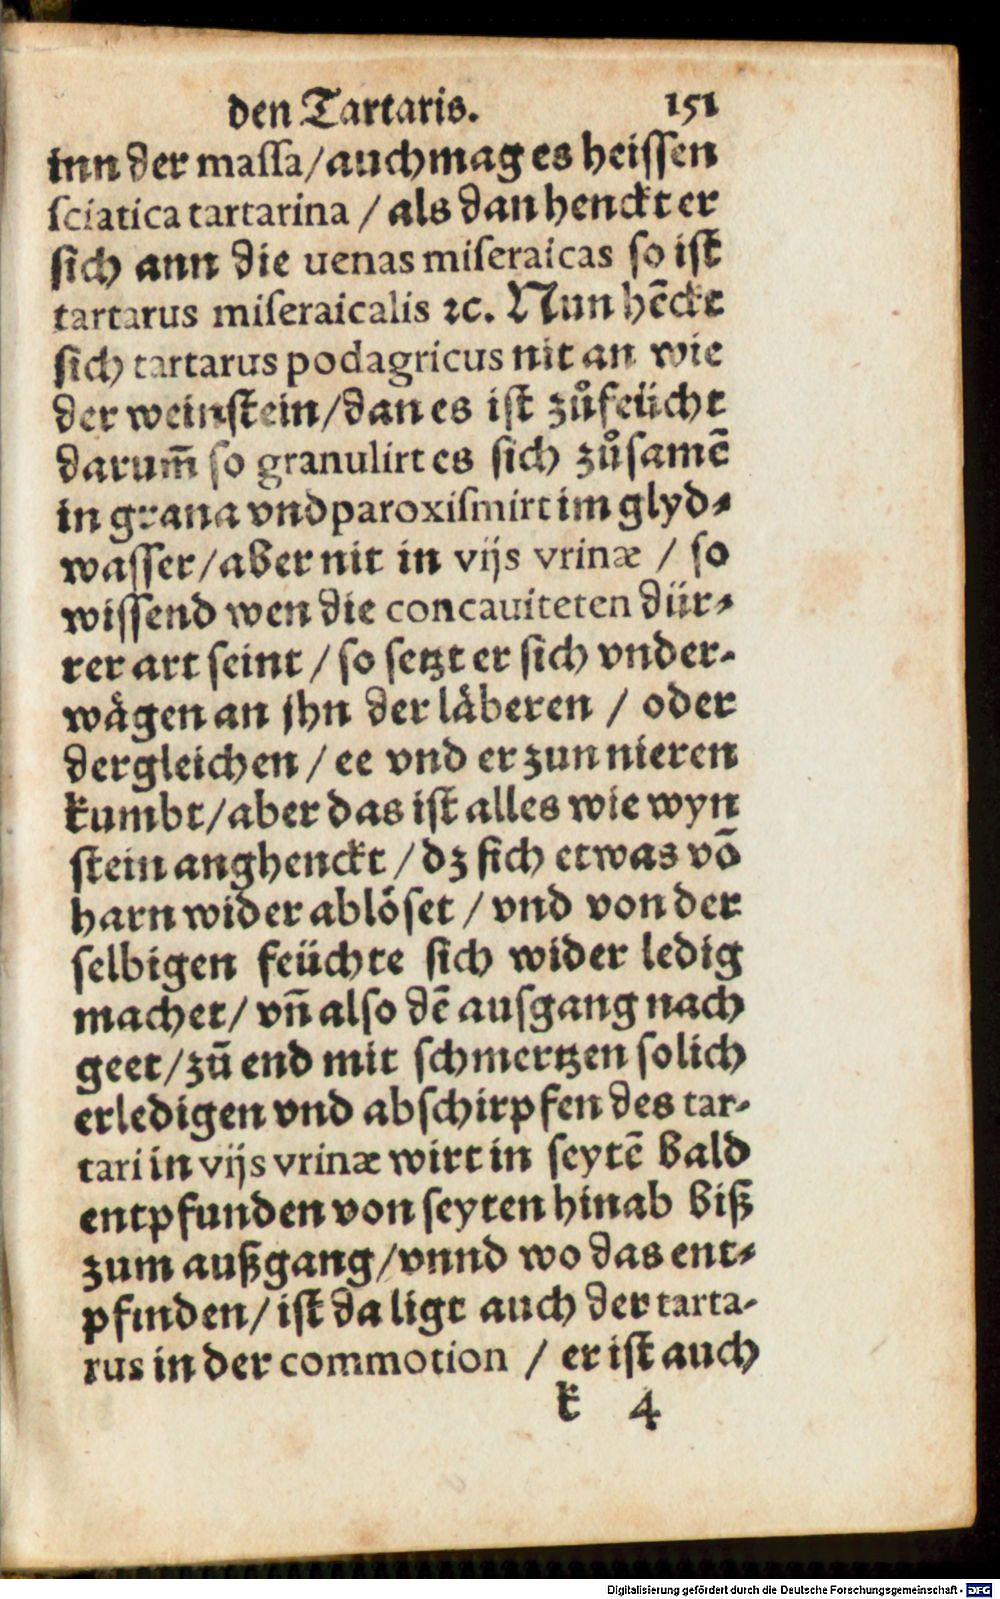 den Tartaris. 151
inn der massa/auch mag es heissen
sciatica tartarina / als dan henckt er
sich ann die uenas miseraicas so ist
tartarus miseraicalis ꝛc. Nun hēckt
sich tartarus podagricus nit an wie
der weinstein/dan es ist zůfeücht
darum̄ so granulirt es sich zůsamē
in grana vnd paroxismirt im glyd-
wasser/aber nit in vijs vrinæ / so
wissend wen die concauiteten dür-
rer art seint / so setzt er sich vnder-
wågen an jhn der låberen / oder
dergleichen / ee vnd er zun nieren
kumbt/aber das ist alles wie wyn
stein anghenckt / dz sich etwas vō
harn wider ablöset / vnd von der
selbigen feüchte sich wider ledig
machet/ vn̄ also dē ausgang nach
geet/zū end mit schmertzen solich
erledigen vnd abschirpfen des tar-
tari in vijs vrinæ wirt in seytē bald
entpfunden von seyten hinab biß
zum außgang/vnnd wo das ent-
pfinden/ ist da ligt auch der tarta-
rus in der commotion / er ist auch
k 4
Digitalisierung gefördert durch die Deutsche Forschungsgemeinschaft - DFG